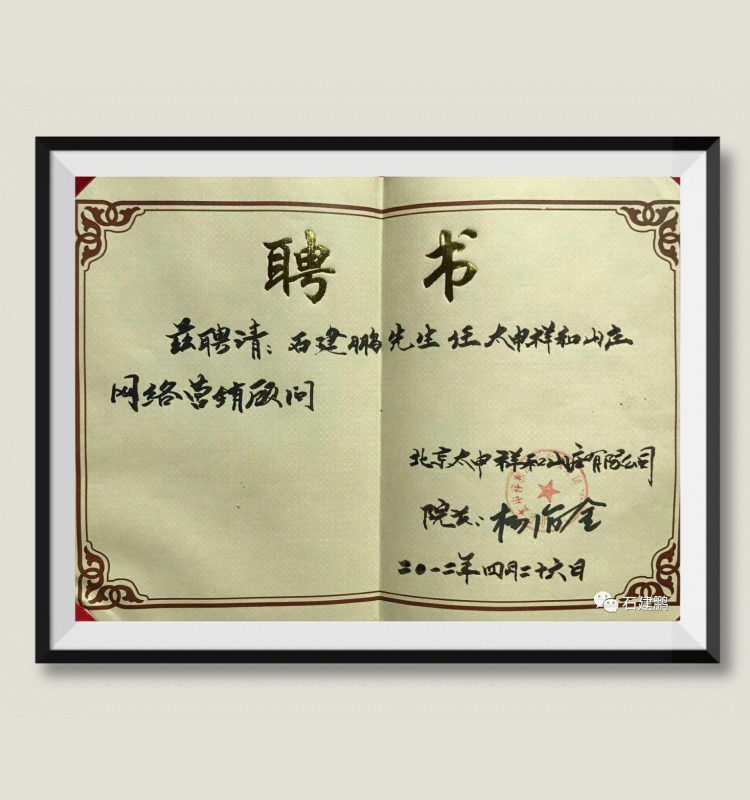 聘书
兹聘请：石建鹏先生任太申祥和山庄
网络营销顾问
北京太申祥和山庄有限公司
院长：杨治全
二〇一二年四月二十六日
石建鹏